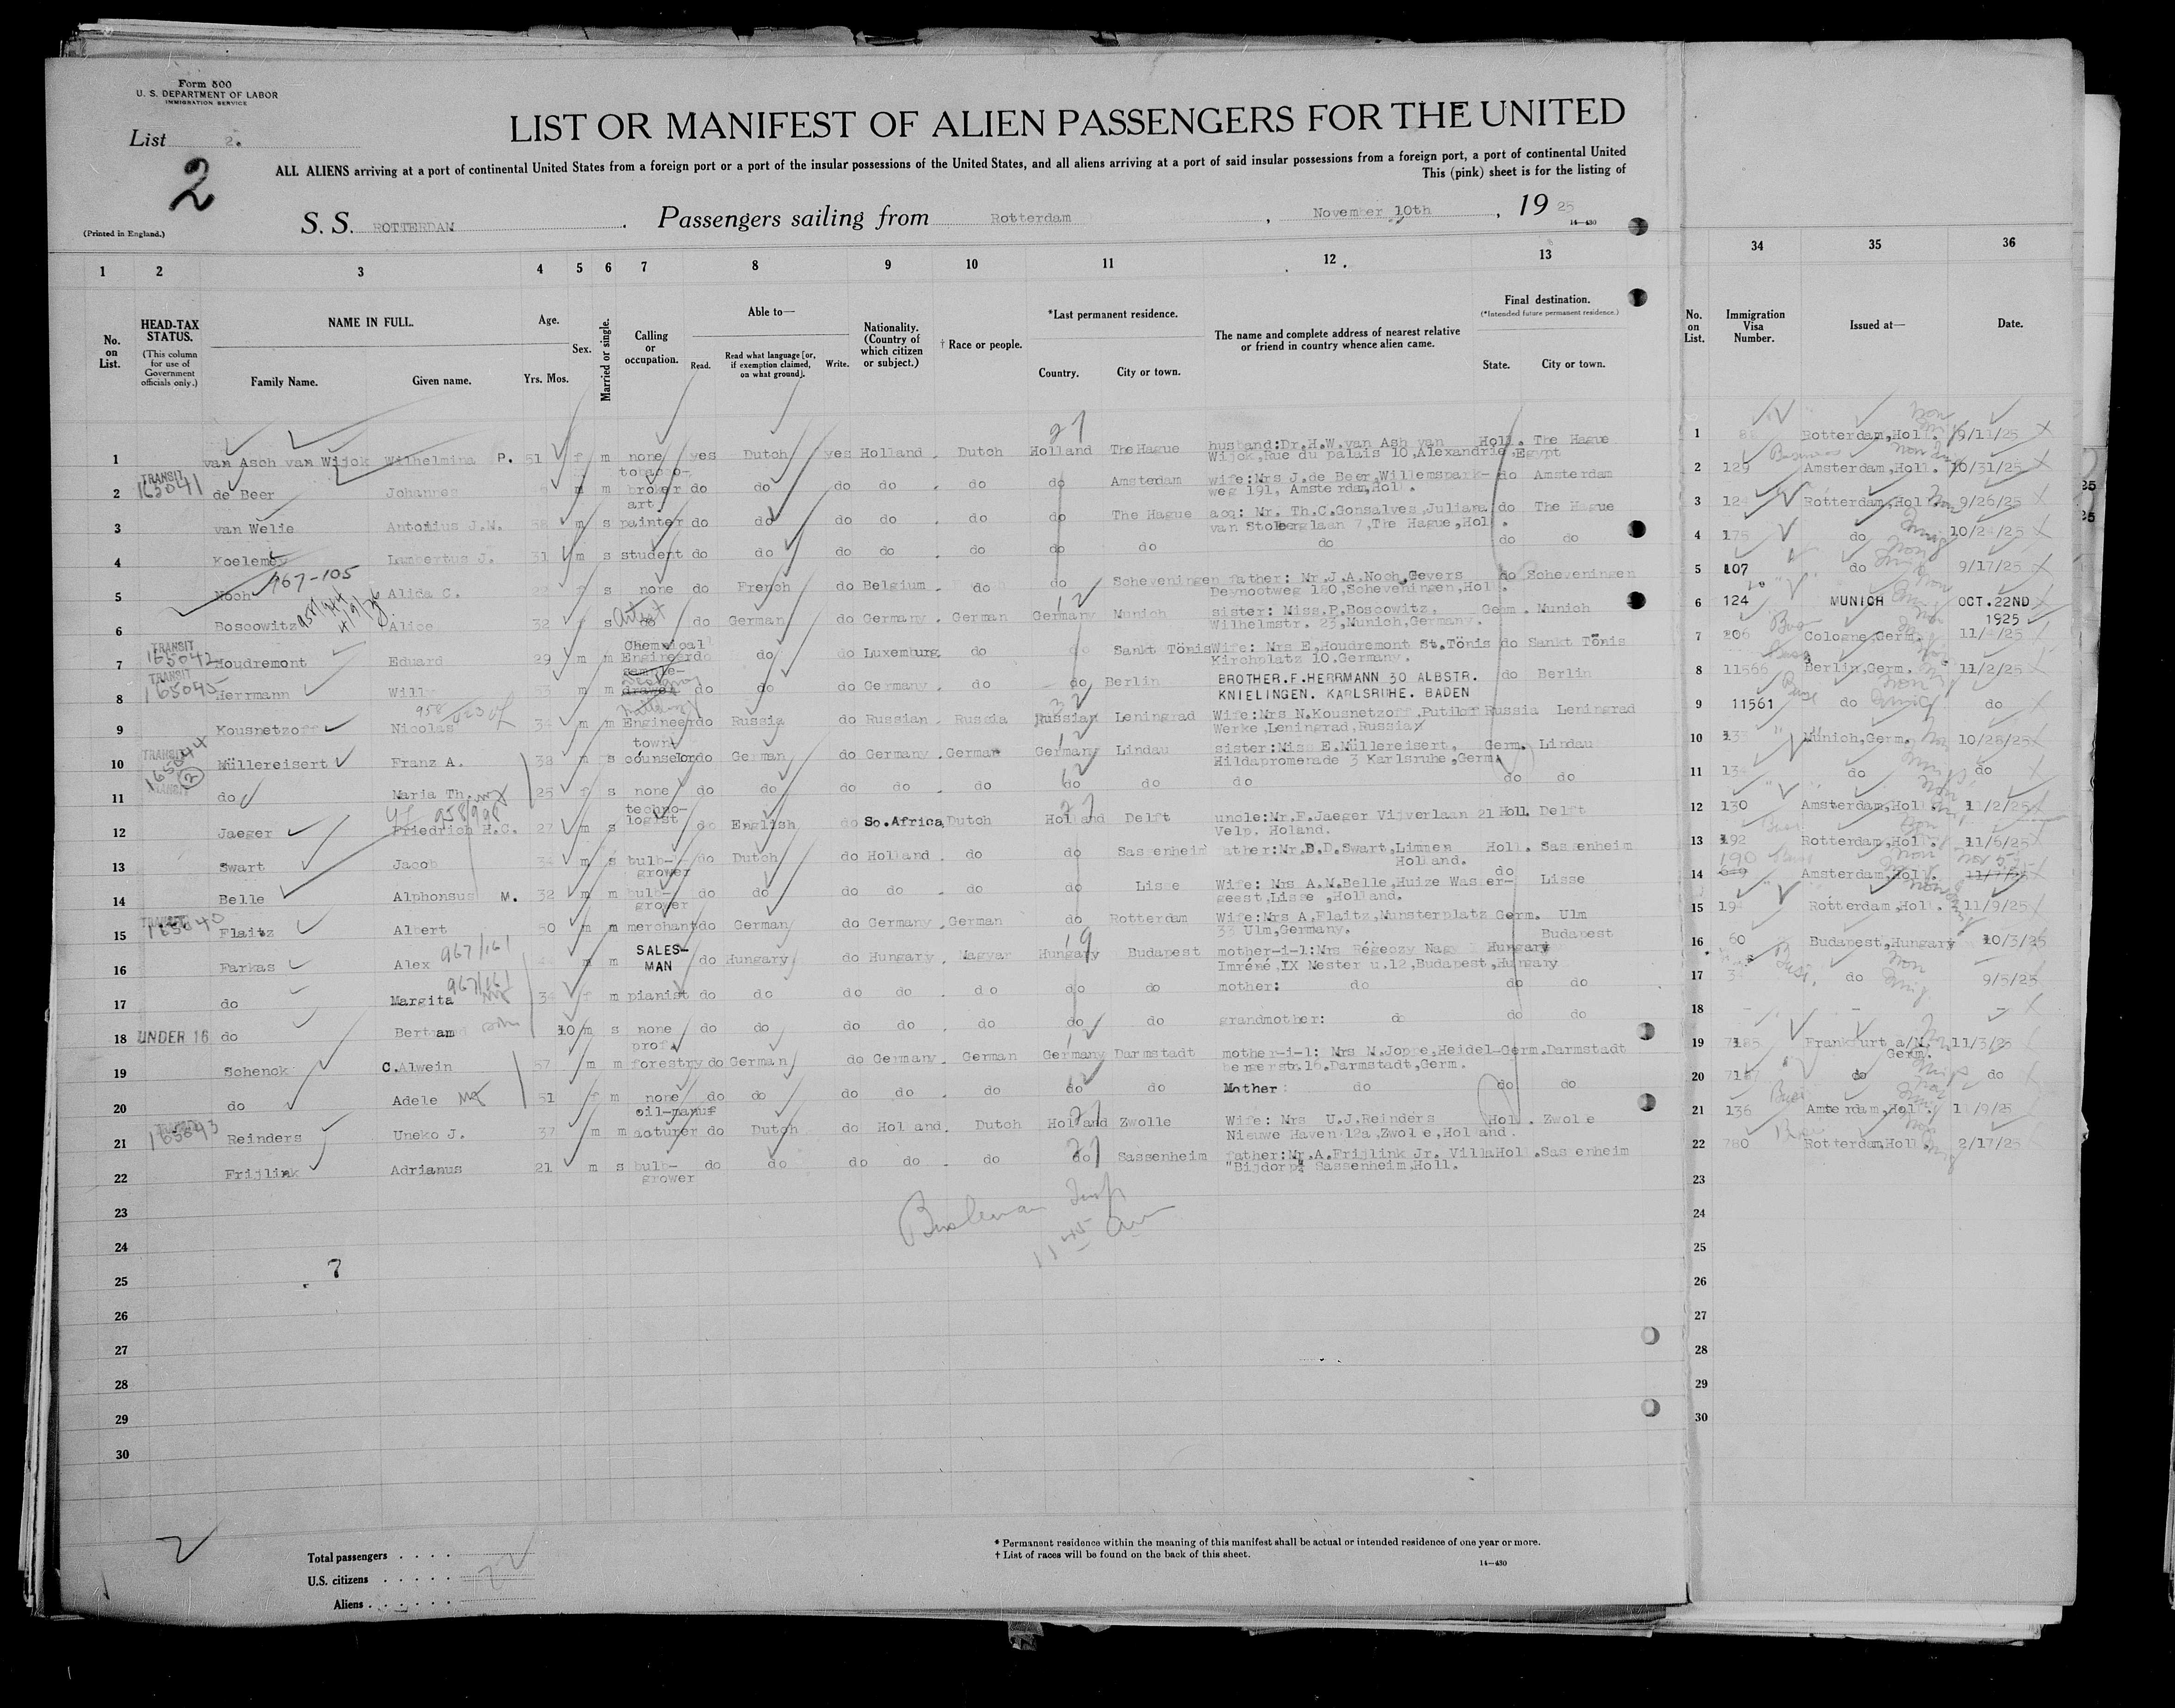 Form 500
U. S. DEPARTMENT OF LABOR
IMMIGRATION SERVICE
List 2.
2
LIST OR MANIFEST OF ALIEN PASSENGERS FOR THE UNITED
ALL ALIENS arriving at a port of continental United States from a foreign port or a port of the insular possessions of the United States, and all aliens arriving at a port of said insular possessions from a foreign port, a port of continental United
This (pink) sheet is for the listing of
(Printed in England.)
S. S. ROTTERDAM . Passengers sailing from Rotterdam , November 10th , 19 25
14—430
1 2 3 4 5 6 7 8 9 10 11 12 13 34 35 36
No. on List.
HEAD-TAX STATUS.
(This column for use of Government officials only.)
NAME IN FULL.
Family Name. Given name.
Age.
Yrs. Mos.
Sex.
Married or single.
Calling or occupation.
Able to—
Read. Read what language [or, if exemption claimed, on what ground]. Write.
Nationality. (Country of which citizen or subject.)
† Race or people.
*Last permanent residence.
Country. City or town.
The name and complete address of nearest relative or friend in country whence alien came.
Final destination.
(*Intended future permanent residence.)
State. City or town.
No. on List.
Immigration Visa Number.
Issued at—
Date.
1 van Asch van Wijck Wilhelmina P. 51 f m none yes Dutch yes Holland. Dutch Holland The Hague husband:Dr.H.W.van Ash van Holl. The Hague 1 Rotterdam,Holl. 9/11/25
Wijck,Rue du palais 10,Alexandrie,Egypt
TRANSIT 165041
2 de Beer Johannes m m tobacco-broker do do do do . do do Amsterdam wife:Mrs J.de Beer,Willemspark- do Amsterdam 2 129 Amsterdam,Holl. 10/31/25
weg 191, Amsterdam,Holl.
3 van Welie Antonius J.M. 38 m s art painter do do do do . do do The Hague acq: Mr. Th.C.Gonsalves,Juliana do The Hague 3 Rotterdam,Holl 9/26/25
van Stolberglaan 7,The Hague,Holl.
4 Koelemey Lambertus J. 31 m s student do do do do . do do do do do do 4 175 do 10/24/25
967-105
5 Noch Alida C. f s none do French do Belgium. do do Scheveningen father: Mr.J.A.Noch,Gevers do Scheveningen 5 107 do 9/17/25
Deynootweg 180,Scheveningen,Holl.
6 Boscowitz Alice 32 f s do German do Germany. German Germany Munich sister: Miss.P.Boscowitz, Germ. Munich 6 124 MUNICH OCT.22ND 1925
Wilhelmstr. 23,Munich,Germany.
TRANSIT 165042
7 Houdremont Eduard 29 m m Chemical Engineer do do do Luxemburg. do do Sankt Tönis Wife: Mrs E.Houdremont St.Tönis do Sankt Tönis 7 206 Cologne,Germ. 11/4/25
Kirchplatz 10.Germany.
TRANSIT 165045
8 Herrmann Willy 53 m m do do do Germany. do do Berlin BROTHER.F.HERRMANN 30 ALBSTR. do Berlin 8 11566 Berlin,Germ. 11/2/25
KNIELINGEN. KARLSRUHE. BADEN
9 Kousnetzoff Nicolas 34 m m Engineer do Russia do Russian. Russia Russian Leningrad Wife:Mrs N.Kousnetzoff,Putiloff Russia Leningrad 9 11561 do do
Werke,Leningrad,Russia
TRANSIT 165044
10 Müllereisert Franz A. 38 m s town counselor do German do Germany. German Germany Lindau sister:Miss E.Müllereisert, Germ. Lindau 10 Munich,Germ. 10/28/25
Hildapromenade 3 Karlsruhe,Germ.
TRANSIT
11 do Maria Th. 25 f s none do do do do . do do do do do do 11 134 do do
958/998
12 Jaeger Friedrich H.C. 27 m s technologist do English do So.Africa. Dutch Holland Delft uncle:Mr.F.Jaeger Vijverlaan 21 Holl. Delft 12 130 Amsterdam,Holl. 11/2/25
Velp. Holand.
13 Swart Jacob 34 m s bulb-grower do Dutch do Holland . do do Sassenheim father:Mr.D.D.Swart,Limmen Holl. Sassenheim 13 192 Rotterdam,Holl. 11/6/25
Holland.
14 Belle Alphonsus M. 32 m m bulb-grower do do do do . do do Lisse Wife: Mrs A.M.Belle,Huize Wasser- do Lisse 14 190 Amsterdam,Holl. Nov 5
geest,Lisse ,Holland.
TRANSIT 165040
15 Flaitz Albert 50 m m merchant do German do Germany . German do Rotterdam Wife:Mrs A.Flaitz,Munsterplatz Germ. Ulm 15 Rotterdam,Holl. 11/9/25
33 Ulm,Germany.
967/161
16 Farkas Alex m m SALES-MAN do Hungary do Hungary . Magyar Hungary Budapest mother-i-l:Mrs Régeczy Nagy Hungary Budapest 16 60 Budapest,Hungary 10/3/25
Imréné,IX Mester u.12,Budapest,Hungary
967/161
17 do Margita 34 f m pianist do do do do . do do do mother: do do do 17 do 9/5/25
18 UNDER 16 do Bertram 10 m s none do do do do . do do do grandmother: do do do 18 - - -
19 Schenck C.Alwein 57 m m prof. forestry do German do Germany . German Germany Darmstadt mother-i-l: Mrs M.Joppe,Heidel- Germ. Darmstadt 19 Frankfurt a/M. Germ. 11/3/25
bergerstr.16.Darmstadt,Germ.
20 do Adele 51 f m none do do do do . do do do Mother: do do do 20 do do
TRANSIT 165043
21 Reinders Uneko J. 37 m m oil-manufacturer do Dutch do Holland. Dutch Holland Zwolle Wife: Mrs U.J.Reinders Holl. Zwolle 21 136 Amsterdam,Holl. 11/9/25
Nieuwe Haven 12a,Zwolle,Holland.
22 Frijlink Adrianus 21 m s bulb-grower do do do do . do do Sassenheim father:Mr.A.Frijlink Jr. Villa Holl. Sassenheim 22 780 Rotterdam,Holl. 2/17/25
"Bijdorp" Sassenheim,Holl.
23 23
24 24
25 25
26 26
27 27
28 28
29 29
30 30
Total passengers . . . .
U.S. citizens . . . . .
Aliens . . . . . .
* Permanent residence within the meaning of this manifest shall be actual or intended residence of one year or more.
† List of races will be found on the back of this sheet.
14—430